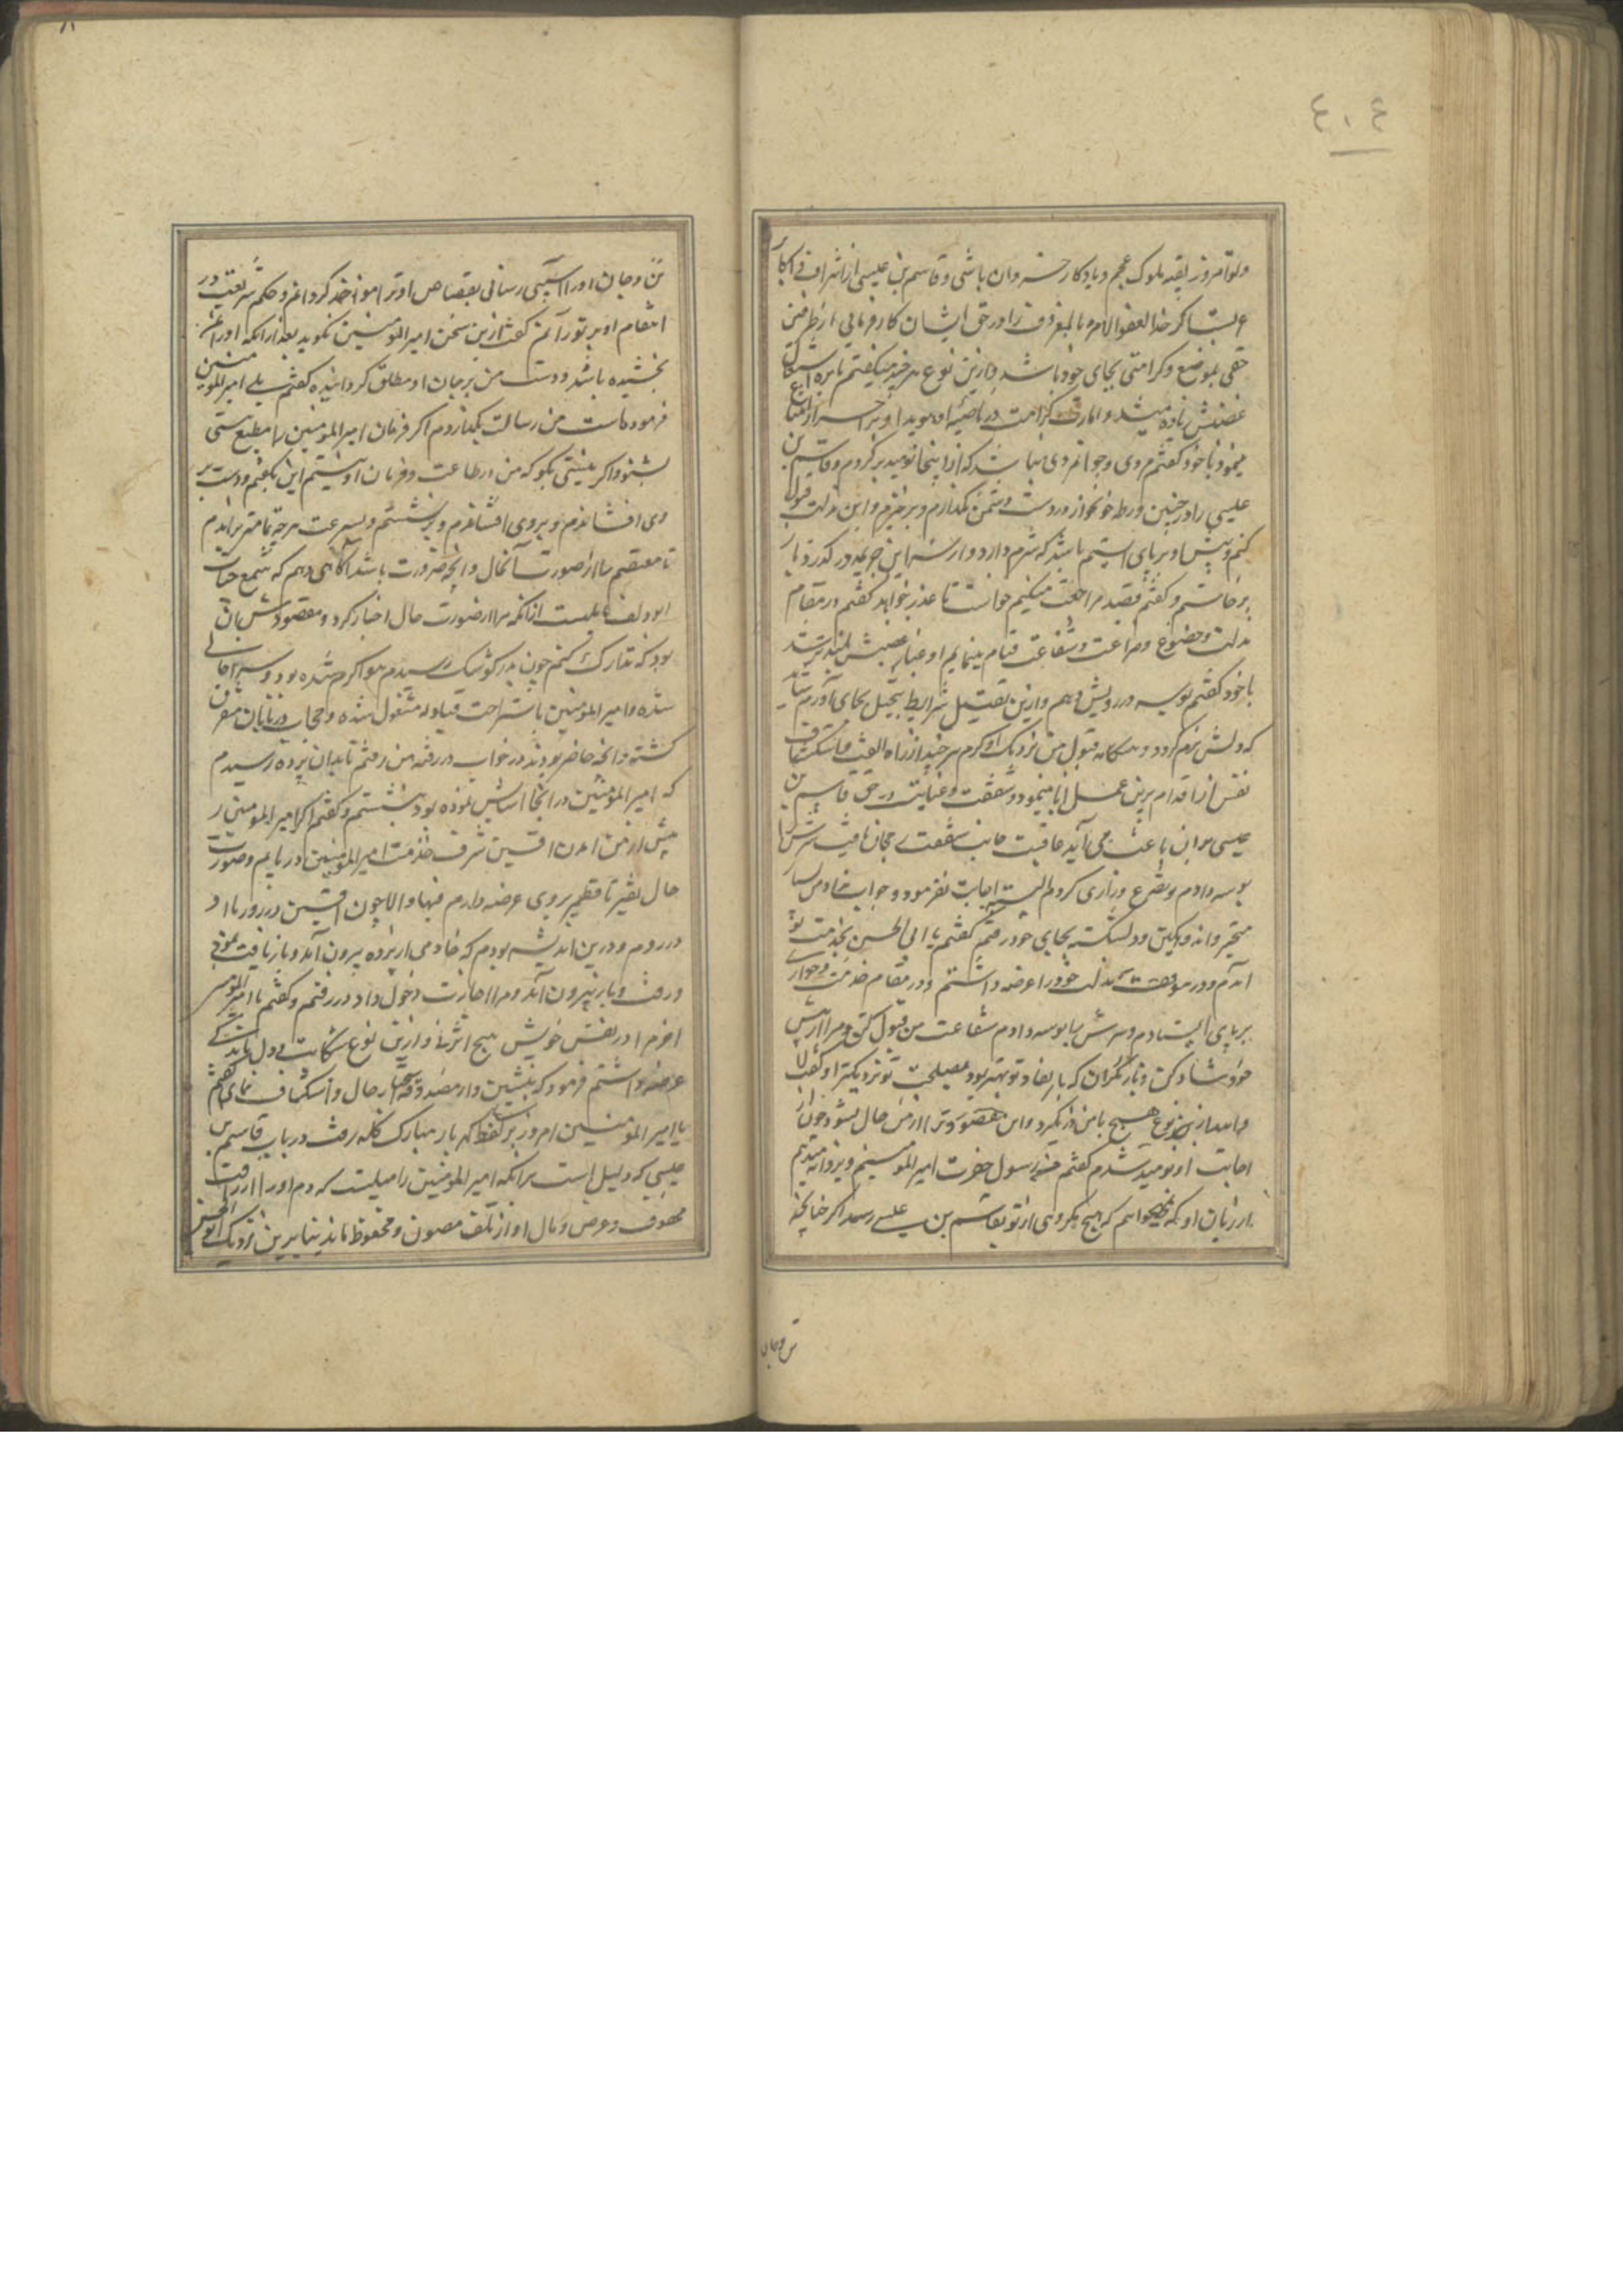 ٤٠٤
و تو امروز بقیه ملوک عجم و یادگار خسروان باشی و قاسم بن عیسی از اشراف و اکابر
عرب اگر خذ العفو و الامر بالمعروف را در حق ایشان کار فرمائی از طرفین
حقی بموضع و کرامتی بجای خود باشد و ازین نوع هر چند میگفتم نایره اشتعال
غضبش زیاده میشد و امارت کراهت در ناصیه او هویدا و بر اجر
مینمود با خود گفتم مردی و جوانمردی نباشد که از اینجا نومید برگردم و قاسم بن
عیسی را در چنین ورطه خونخوار در دست دشمن بگذارم و برخیزم و این مذلت قبول
کنم و پیش او بر پای ایستم باشد که شرم دارد و از سر این جریمه در گذرد باز
برخاستم و گفتم قصد مراجعت میکنم خواست تا عذر خواهد گفتم در مقام
مذلت و خضوع و ضراعت و شفاعت قیام مینمایم او غبار غضبش بلندتر شد
با خود گفتم بوسه در رویش دهم و ازین تقبیل شرایط تبجیل بجای آورم شاید
که دلش نرم گردد و بمکانه قبول من نزدیک او کرم هر چند از راه الفت و استنکاف
نفس از اقدام برین عمل ابا مینمود و شفقت و عنایت در حق قاسم بن
عیسی بر آن باعث می آید عاقبت جانب شفقت رجحان یافت سرش را
بوسه دادم و تضرع و زاری کردم البته اجابت نفرمود و جواب نداد من بسیار
متحیر و اندوهگین و دلشکسته بجای خود رفتم گفتم یا ابی الحسن بخدمت تو
آمدم و در موقف مذلت خود را عرضه داشتم و در مقام خدمت و خواری
بر پای ایستادم و سرش ببوسه دادم شفاعت من قبول کن و مرا ازین
خود شاد کن و بازگردان که بابقاء تو بهتر بود و بمصلحت تو نزدیکتر او گفت لا
و الله ازین نوع هیچ با من در نگیرد و این مقصود ترا از من حال نشود چون از
اجابت او نومید شدم گفتم من رسول حضرت امیر المؤمنینم و پروانه میدهم
از زبان او که نمیخواهم که هیچ مکروهی از تو بقاسم بن عیسی رسد اگر چنانچه
تن و جان
تن و جان او را آسیبی رسانی بقصاص او ترا مواخذ گردانم و حکم شریعت در
انتقام او بر تو رانم گفت ازین سخن امیر المؤمنین نگوید بعد از آنکه او را بمن
بخشیده باشد و دست من بر جان او مطلق گردانیده گفتم بلی امیر المؤمنین
فرموده است من رسالت بگذاردم اگر فرمان امیر المؤمنین را مطیع هستی
بشنو و اگر نیستی بگو که من در طاعت و فرمان او نیستم این بگفتم و دست بر
وی افشاندم و بر وی افشاندم و برنشستم و بسرعت هر چه تمامتر براندم
تا معتصم را از صورت آنحال و آنچه ضرورت باشد آگاهی دهم که شمع حیات
ابو دلف از آنکه مرا از صورت حال اخبار کرد و مقصودش آن
بود که تدارک کنم چون بدر کوشک رسیدم هوا گرم شده بود و سرا خالی
شده و امیر المؤمنین باستراحت قیلوله مشغول شده و حجاب و دربانان متفرق
گشته و آنچه حاضر بودند در خواب در رفته من رفتم تا بدان پرده رسیدم
که امیر المؤمنین در آنجا آسایش نموده بود بنشستم و گفتم اگر امیر المؤمنین را
پیش از من آمدن افشین شرف خدمت امیر المؤمنین دریابم و صورت
حال نقیر تا قطمیر بر وی عرضه دارم فبها و الا چون افشین در رود با او
در روم و درین اندیشه بودم که خادمی از پرده بیرون آمد و باز تافت
و رفت و باز بیرون آمد و مرا اجازت دخول داد در رفتم و گفتم یا امیر المؤمنین
آخر مرا در نفس خویش هیچ اثر نه و ازین نوع شکایت
عرضه داشتم فرمود که بنشین و از مصدوقه حال و استکشاف نمای گفتم
یا امیر المؤمنین امروز بر لفظ گهربار مبارک کلمه رفت در باب قاسم بن
عیسی که دلیل است بر آنکه امیر المؤمنین را میلیست که دم او را از اراقت
محقون و عرض و مال او از تلف مصون و محفوظ ماند بنابرین نزدیک ابو الحسن